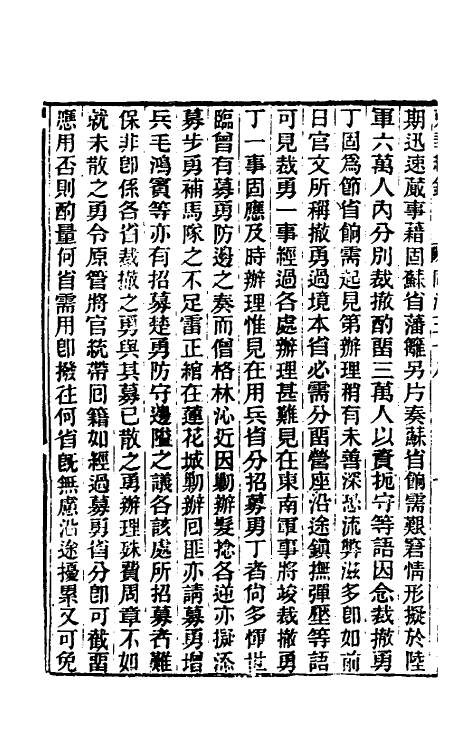 期迅速蕆事藉固蘇省藩籬另片奏蘇省餉需艱窘情形擬於陸
軍六萬人內分別裁撤酌留三萬人以資扼守等語因念裁撤勇
丁固爲節省餉需起見第辦理稍有未善深恐流弊滋多卽如前
日官文所稱撤勇過境本省必需分留營座沿途鎭撫彈壓等語
可見裁勇一事經過各處辦理甚難見在東南軍事將竣裁撤勇
丁一事固應及時辦理惟見在用兵省分招募勇丁者尙多惲世
臨曾有募勇防邊之奏而僧格林沁近因勦辦髮捻各逆亦擬添
募步勇補馬隊之不足雷正綰在蓮花城勦辦回匪亦請募勇增
兵毛鴻賓等亦有招募楚勇防守邊隘之議各該處所招募者難
保非卽係各省裁撤之勇與其募已散之勇辦理殊費周章不如
就未散之勇令原管將官統帶回籍如經過募勇省分卽可截留
應用否則酌量何省需用卽撥往何省旣無慮沿途擾累又可免